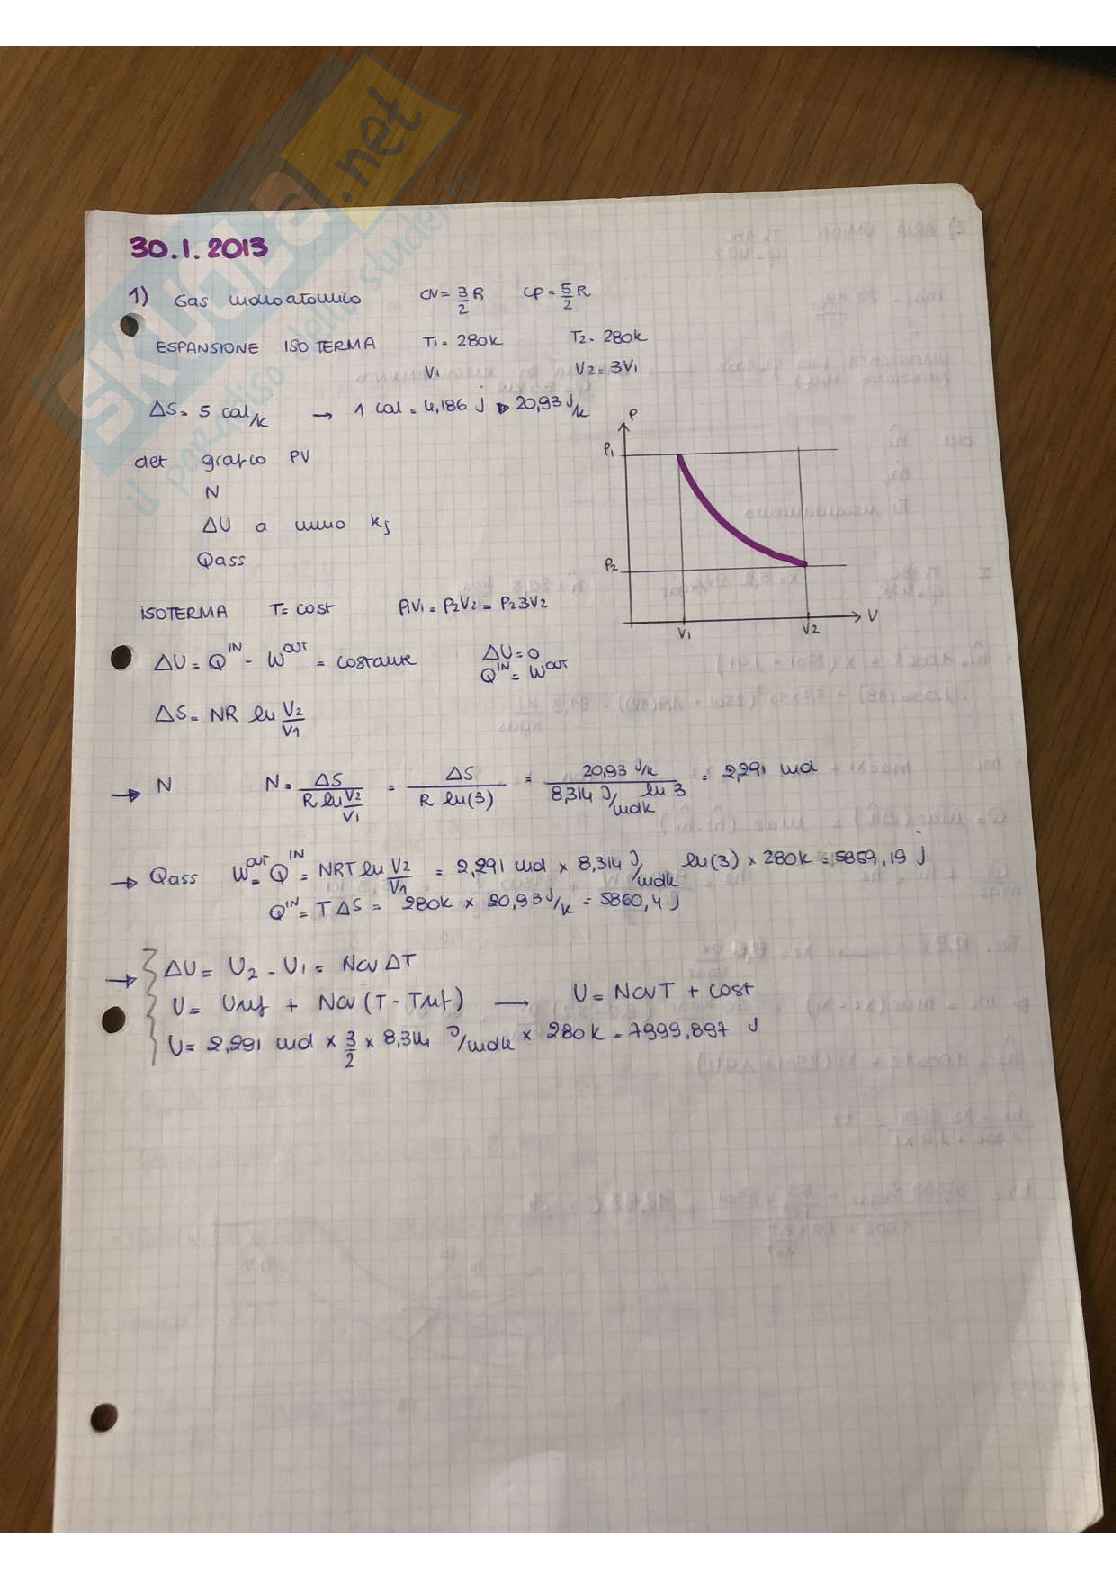 SKUOLA.net
il paradiso dello studente
30.1.2013
1) Gas monoatomico cv = 3/2 R cp = 5/2 R
ESPANSIONE ISOTERMA T1 = 280K T2 = 280K
V1 V2 = 3V1
ΔS = 5 cal/K → 1 cal = 4,186 J 20,93 J/K
det grafico PV
N
ΔU a
Qass
P
P1
P2
V1 V2 V
ISOTERMA T = cost P1V1 = P2V2 = P2 3V2
ΔU = Q^IN - W^OUT = costante ΔU = 0
Q^IN = W^OUT
ΔS = NR ln V2/V1
→ N N = ΔS / (R ln V2/V1) = ΔS / (R ln(3)) = 20,93 J/K / (8,314 J/molK ln 3) = 2,291 mol
→ Qass W^OUT = Q^IN = NRT ln V2/V1 = 2,291 mol × 8,314 J/molK ln(3) × 280K = 5859,19 J
Q^IN = TΔS = 280K × 20,93 J/K = 5860,4 J
→ ΔU = U2 - U1 = Ncv ΔT
U = Urif + Ncv (T - Trif) → U = NcvT + cost
U = 2,291 mol × 3/2 × 8,314 J/molK × 280K = 7999,897 J